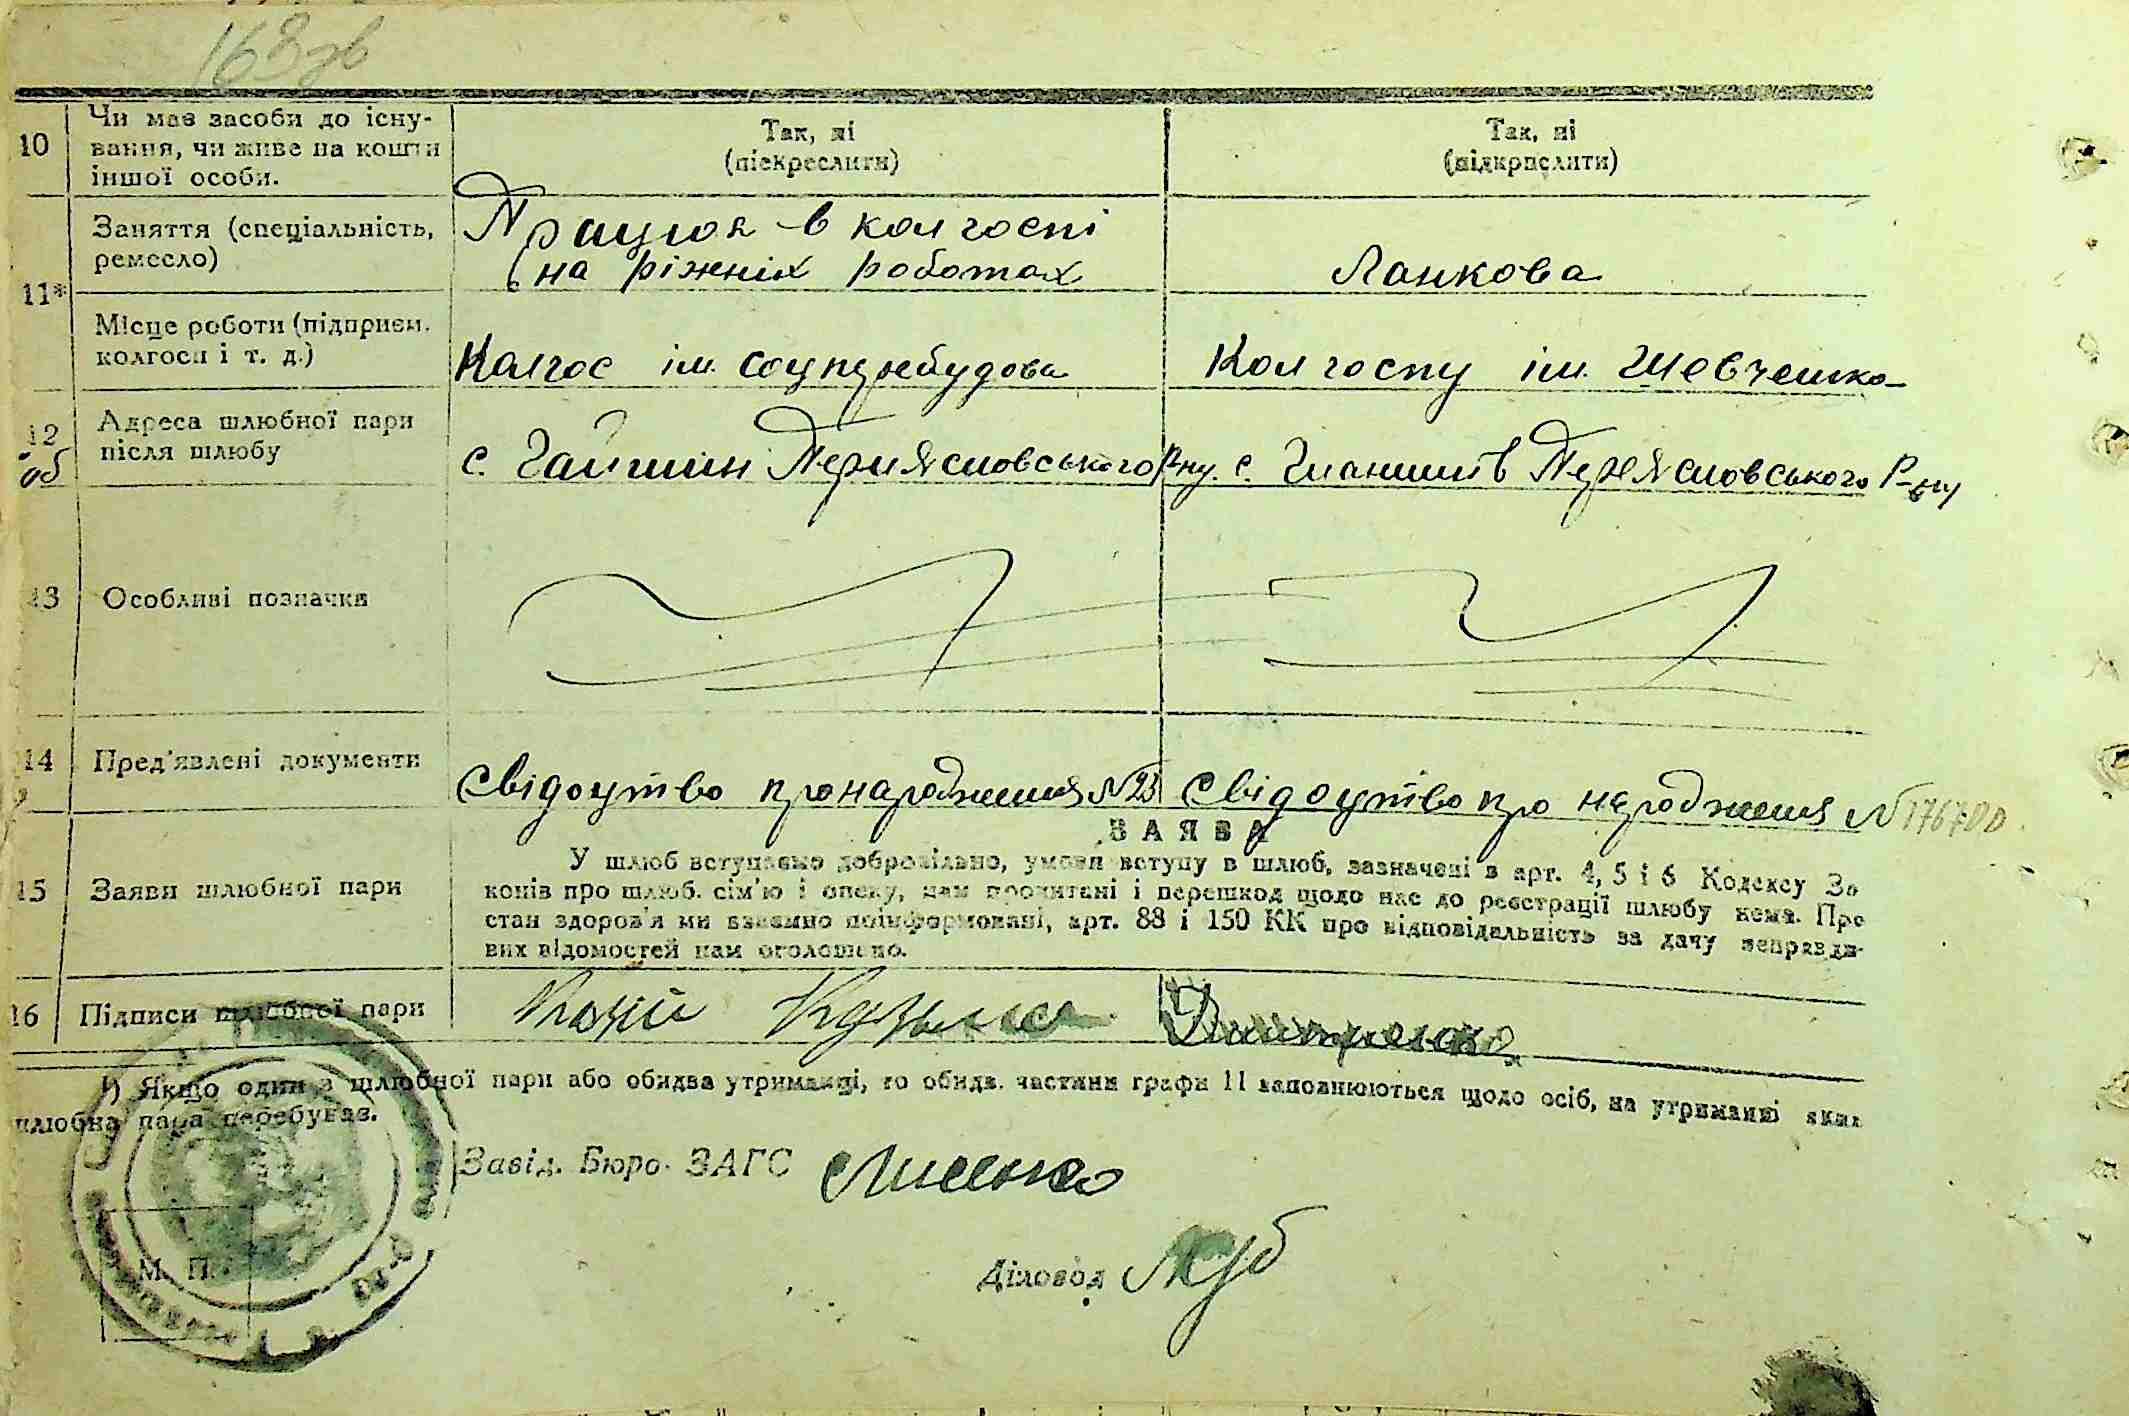 168 зв
10
Чи має засоби до існу-
вання, чи живе на кошти
іншої особи.
Так, ні
(підкреслити)
Так, ні
(підкреслити)
11*
Заняття (спеціальність,
ремесло)
Працює в колгоспі
на ріжних роботах
Ланкова
Місце роботи (підприєм.
колгосп і т. д.)
Колгос ім. соцперебудова
Колгоспу ім. Шевченка
12
об
Адреса шлюбної пари
після шлюбу
с. Гайшин Переясловського Р-ну.
с. Гланишів Переясловського Р-ну
13
Особливі позначки
14
Пред'явлені документи
Свідоцтво про народження №23
Свідоцтво про народження №
15
Заяви шлюбної пари
ЗАЯВА
У шлюб вступаємо добровільно, умови вступу в шлюб, зазначені в арт. 4, 5 і 6 Кодексу За
конів про шлюб. сім'ю і опеку, нам прочитані і перешкод щодо нас до реєстрації шлюбу нема. Про
стан здоров'я ми взаємно поінформовані, арт. 88 і 150 КК про відповідальність за дачу неправди-
вих відомостей нам оголошено.
16
Підписи шлюбної пари
Кузьма
Дмитренко
¹) Якщо один з шлюбної пари або обидва утриманці, то обидв. частини графи 11 заповнюються щодо осіб, на утриманні яких
шлюбна пара перебуває.
Завід. Бюро ЗАГС Лисенко
М. П.
Діловод